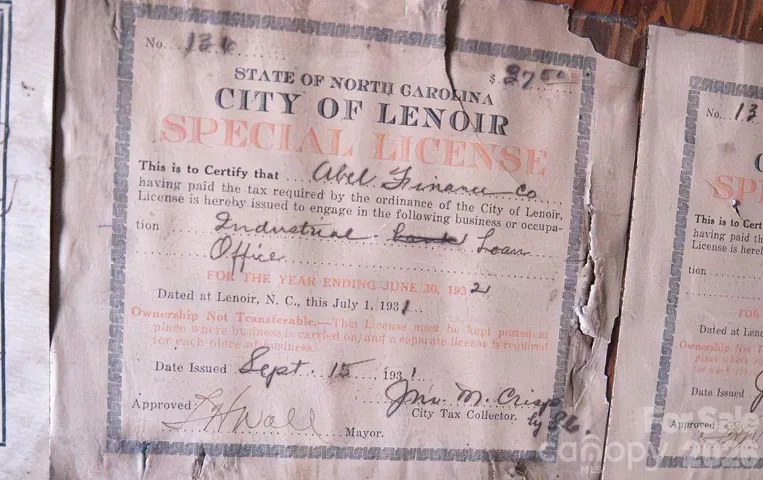 No. 136
$ 37.50
STATE OF NORTH CAROLINA
CITY OF LENOIR
SPECIAL LICENSE
This is to Certify that Abel Finance Co
having paid the tax required by the ordinance of the City of Lenoir,
License is hereby issued to engage in the following business or occupa-
tion Industrial Loan
Office
FOR THE YEAR ENDING JUNE 30, 1932
Dated at Lenoir, N. C., this July 1, 1931.
Ownership Not Transferable.—This License must be kept posted at
place where business is carried on, and a separate license is required
for each place of business.
Date Issued Sept. 15, 1931
Jno. M. Crisp
City Tax Collector.
by
Approved Wall
Mayor.
No. 13
C
SP
This is to Certi
having paid th
License is hereb
tion
FO
Dated at Leno
Ownership Not
place whe
for each p
Date Issued
Approved
For Sale
canopy 2026
MLS